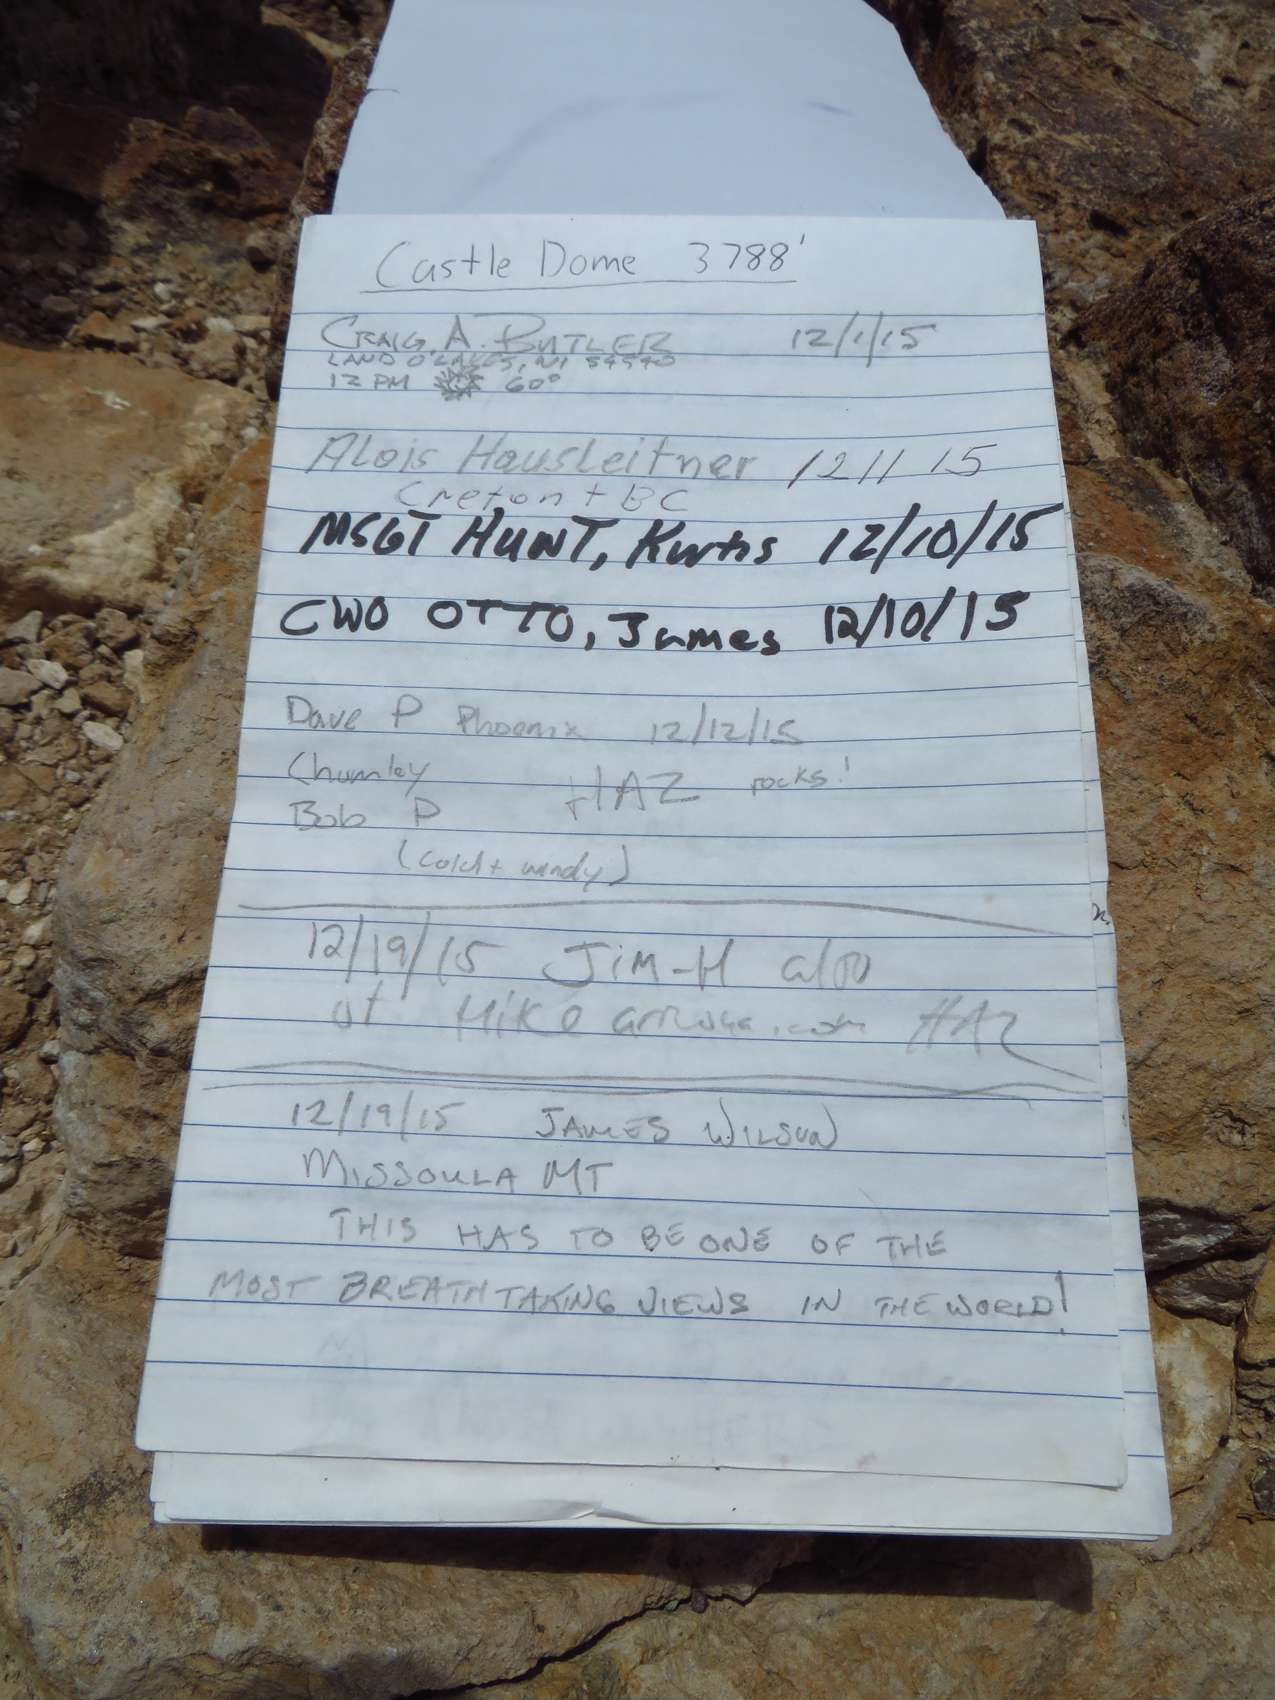 Castle Dome 3788'
CRAIG A. BUTLER 12/1/15
LAND O'LAKES, WI 54540
12 PM 60°
Alois Hausleitner 12 11 15
Creton + BC
MSGT HUNT, Kurtis 12/10/15
CWO OTTO, James 12/10/15
Dave P Phoenix 12/12/15
Chumley HAZ rocks!
Bob P
(cold + windy)
12/19/15 Jim-H also
of Hike arizona.com HAZ
12/19/15 JAMES WILSON
MISSOULA MT
THIS HAS TO BE ONE OF THE
MOST BREATHTAKING VIEWS IN THE WORLD!